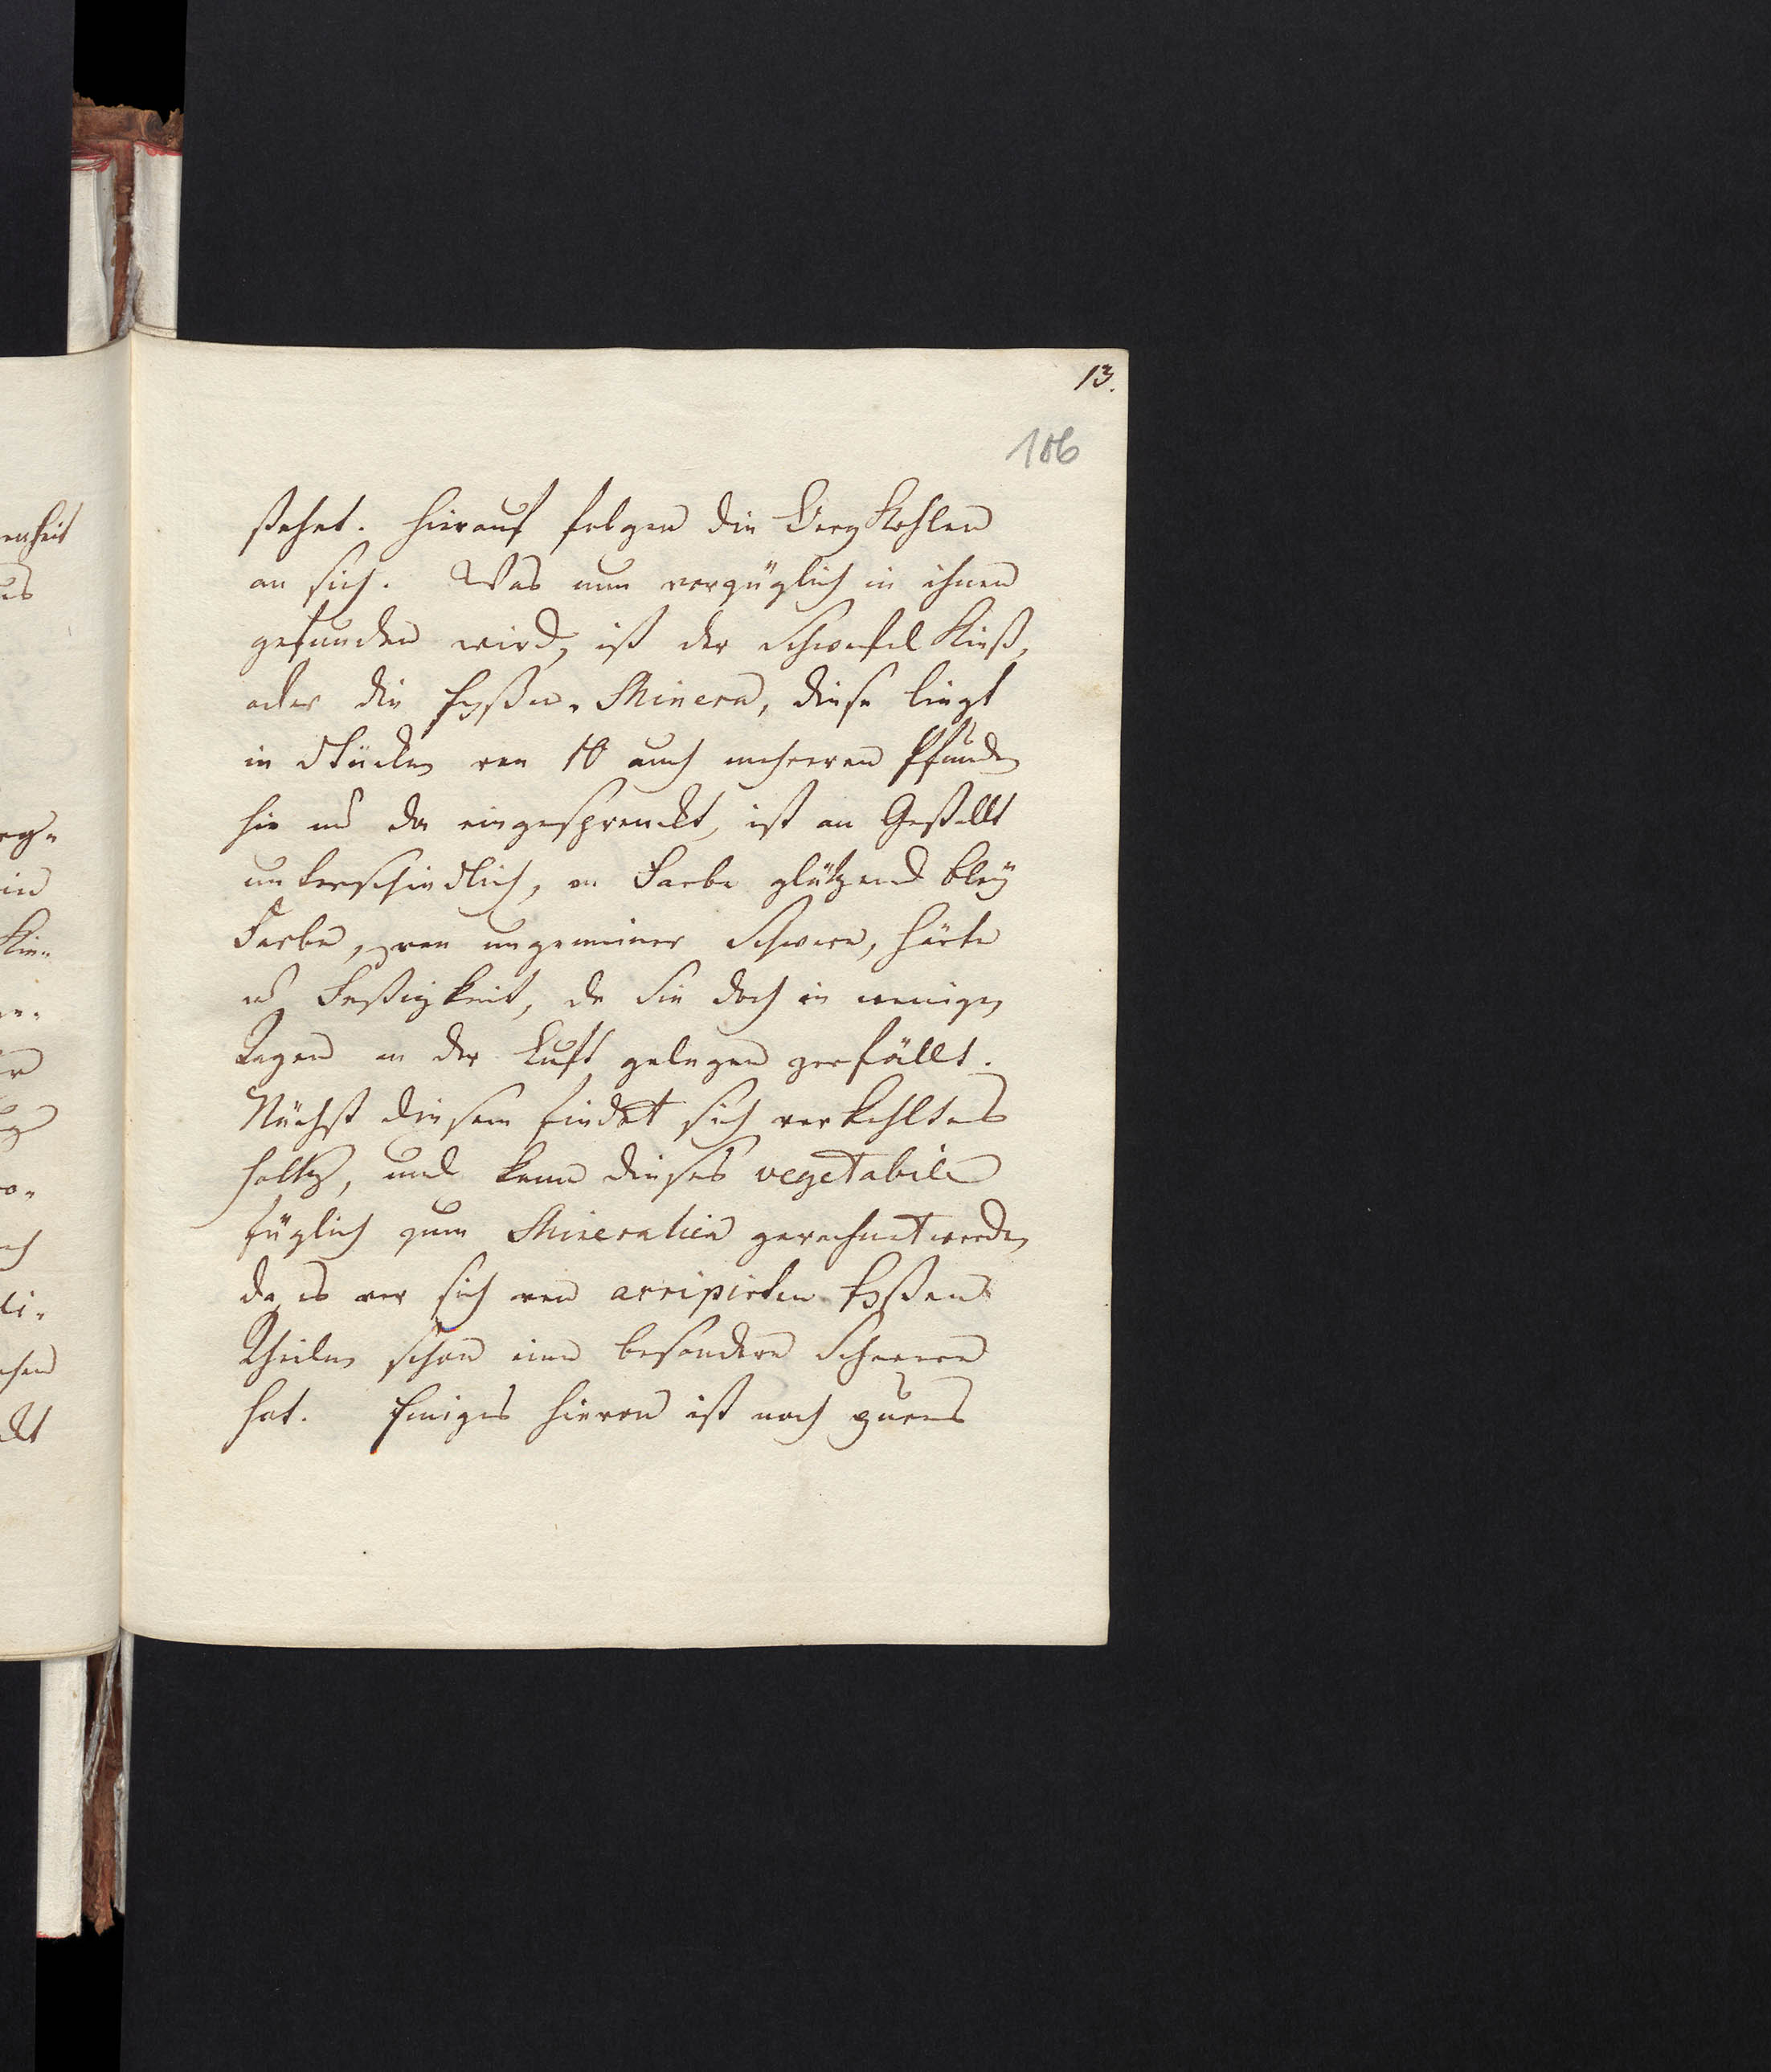 13.
106
stehet. Hierauf folgen die Berg Kohlen
an sich. Was nun vorzüglich in ihnen
gefunden wird, ist der Schwefel Kieß,
oder die Eyßen-Minera, diese liegt
in Stücken von 10 auch mehreren Pfunden
hie und da eingesprenckt, ist an Gestallt
unterschiedlich, an Farbe glützend bley
Farbe, von ungemeiner Schwere, Härte
und Festigkeit, da Sie doch in wenigen
Tagen an der Luft gelegen zerfällt.
Nächst diesem findet sich verkohltes
Holtz, und kann dieses vegetabile
füglich zum Mineralien gerechnet werden
da es vor sich von arripirten Eyßen
Theilen schon eine besondere Schwere
hat. Einiges hievon ist noch pures